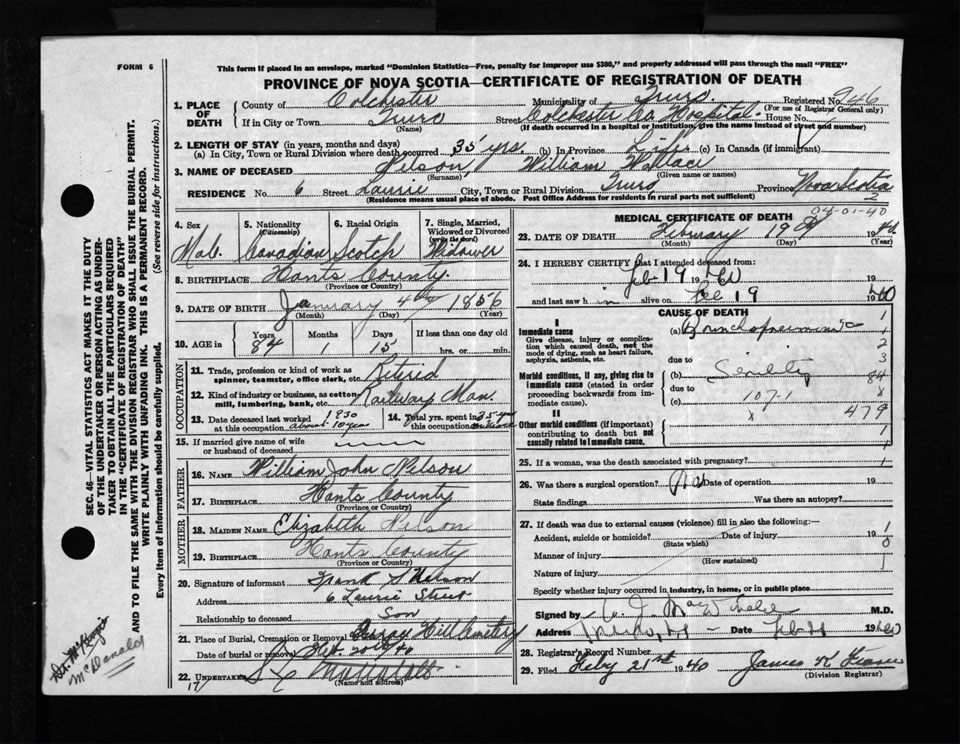 FORM 6
This form if placed in an envelope, marked "Dominion Statistics—Free, penalty for improper use $300," and properly addressed will pass through the mail "FREE"
PROVINCE OF NOVA SCOTIA—CERTIFICATE OF REGISTRATION OF DEATH
1. PLACE OF DEATH County of Colchester Municipality of Truro Registered No. 946
(For use of Registrar General only)
If in City or Town Truro Street Colchester Co. Hospital House No.
(Name) (If death occurred in a hospital or institution, give the name instead of street and number)
2. LENGTH OF STAY (in years, months and days)
(a) In City, Town or Rural Division where death occurred 35 yrs. (b) In Province Life (c) In Canada (if immigrant)
3. NAME OF DECEASED Nelson, William Wallace
(Surname) (Given name or names)
RESIDENCE No. 6 Street Laurie City, Town or Rural Division Truro Province Nova Scotia
(Residence means usual place of abode. Post Office Address for residents in rural parts not sufficient) 2
4. Sex 5. Nationality (Citizenship) 6. Racial Origin 7. Single, Married, Widowed or Divorced (write the word)
Male Canadian Scotch Widower
8. BIRTHPLACE Hants County
(Province or County)
9. DATE OF BIRTH January 4th 1856
(Month) (Day) (Year)
10. AGE in Years Months Days If less than one day old
84 1 15 hrs. or min.
OCCUPATION
11. Trade, profession or kind of work as spinner, teamster, office clerk, etc. Retired
12. Kind of industry or business, as cotton mill, lumbering, bank, etc. Railway Man.
13. Date deceased last worked at this occupation 1930 about 10 yrs 14. Total yrs. spent in this occupation 35 yrs
15. If married give name of wife or husband of deceased
FATHER
16. NAME William John Nelson
17. BIRTHPLACE Hants County
(Province or Country)
MOTHER
18. MAIDEN NAME Elizabeth Nelson
19. BIRTHPLACE Hants County
(Province or Country)
20. Signature of informant Frank S Nelson
Address 6 Laurie Street
Relationship to deceased Son
21. Place of Burial, Cremation or Removal Hill Cemetery
Date of burial or removal Feb. 20th 40
22. UNDERTAKER
(Name and address)
17
MEDICAL CERTIFICATE OF DEATH
04-01-40
23. DATE OF DEATH February 19th 1940
(Month) (Day) (Year)
24. I HEREBY CERTIFY that I attended deceased from:
Feb 19 1940 19
and last saw h im alive on Feb 19 1940
CAUSE OF DEATH
I
Immediate cause
Give disease, injury or complication which caused death, not the mode of dying, such as heart failure, asphyxia, asthenia, etc.
(a) Bronchopneumonia
due to
Morbid conditions, if any, giving rise to immediate cause (stated in order proceeding backwards from immediate cause).
(b) Senility
due to
(c) 107-1
II
Other morbid conditions (if important) contributing to death but not causally related to immediate cause.
1
2
3
84
x
479
1
1
25. If a woman, was the death associated with pregnancy?
26. Was there a surgical operation? No Date of operation
State findings Was there an autopsy?
27. If death was due to external causes (violence) fill in also the following:—
Accident, suicide or homicide? Date of injury 19
(State which)
Manner of injury
(How sustained)
Nature of injury
Specify whether injury occurred in Industry, in home, or in public place
Signed by M.D.
Address Truro, N.S. Date Feb 21 1940
28. Registrar's Record Number
29. Filed Feby 21st 1940 James K
(Division Registrar)
SEC. 46—VITAL STATISTICS ACT MAKES IT THE DUTY OF THE UNDERTAKER OR PERSON ACTING AS UNDERTAKER TO OBTAIN ALL THE PARTICULARS REQUIRED IN THE "CERTIFICATE OF REGISTRATION OF DEATH" AND TO FILE THE SAME WITH THE DIVISION REGISTRAR WHO SHALL ISSUE THE BURIAL PERMIT.
WRITE PLAINLY WITH UNFADING INK. THIS IS A PERMANENT RECORD.
Every item of information should be carefully supplied. (See reverse side for instructions.)
McDonald